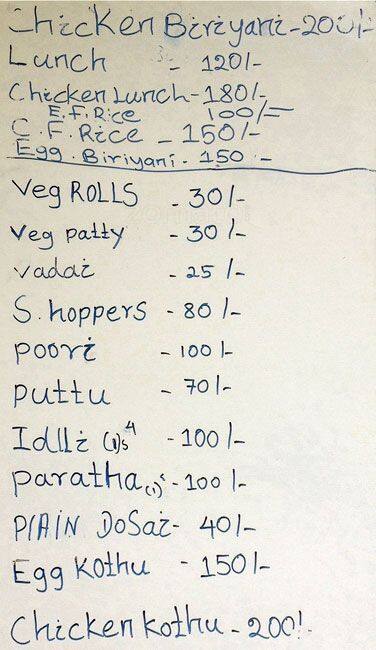 Chicken Biriyani - 200/-
Lunch - 120/-
Chicken Lunch - 180/-
E.F.Rice 100/=
C.F.Rice - 150/-
Egg. Biriyani. - 150 -
Veg ROLLS - 30/-
Veg patty - 30/-
vadai - 25/-
S.hoppers - 80/-
poori - 100/-
puttu - 70/-
Idlli - 100/-
paratha - 100/-
PlAIN DoSai - 40/-
Egg Kothu - 150/-
Chicken kothu - 200/-